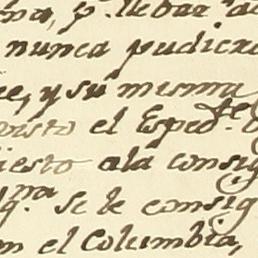 ña, p.r llebar a
nunca pudier
ée, y su misma
visto el Esped.te
iesto ala consig
q.na Se le consig
en el Columbia,